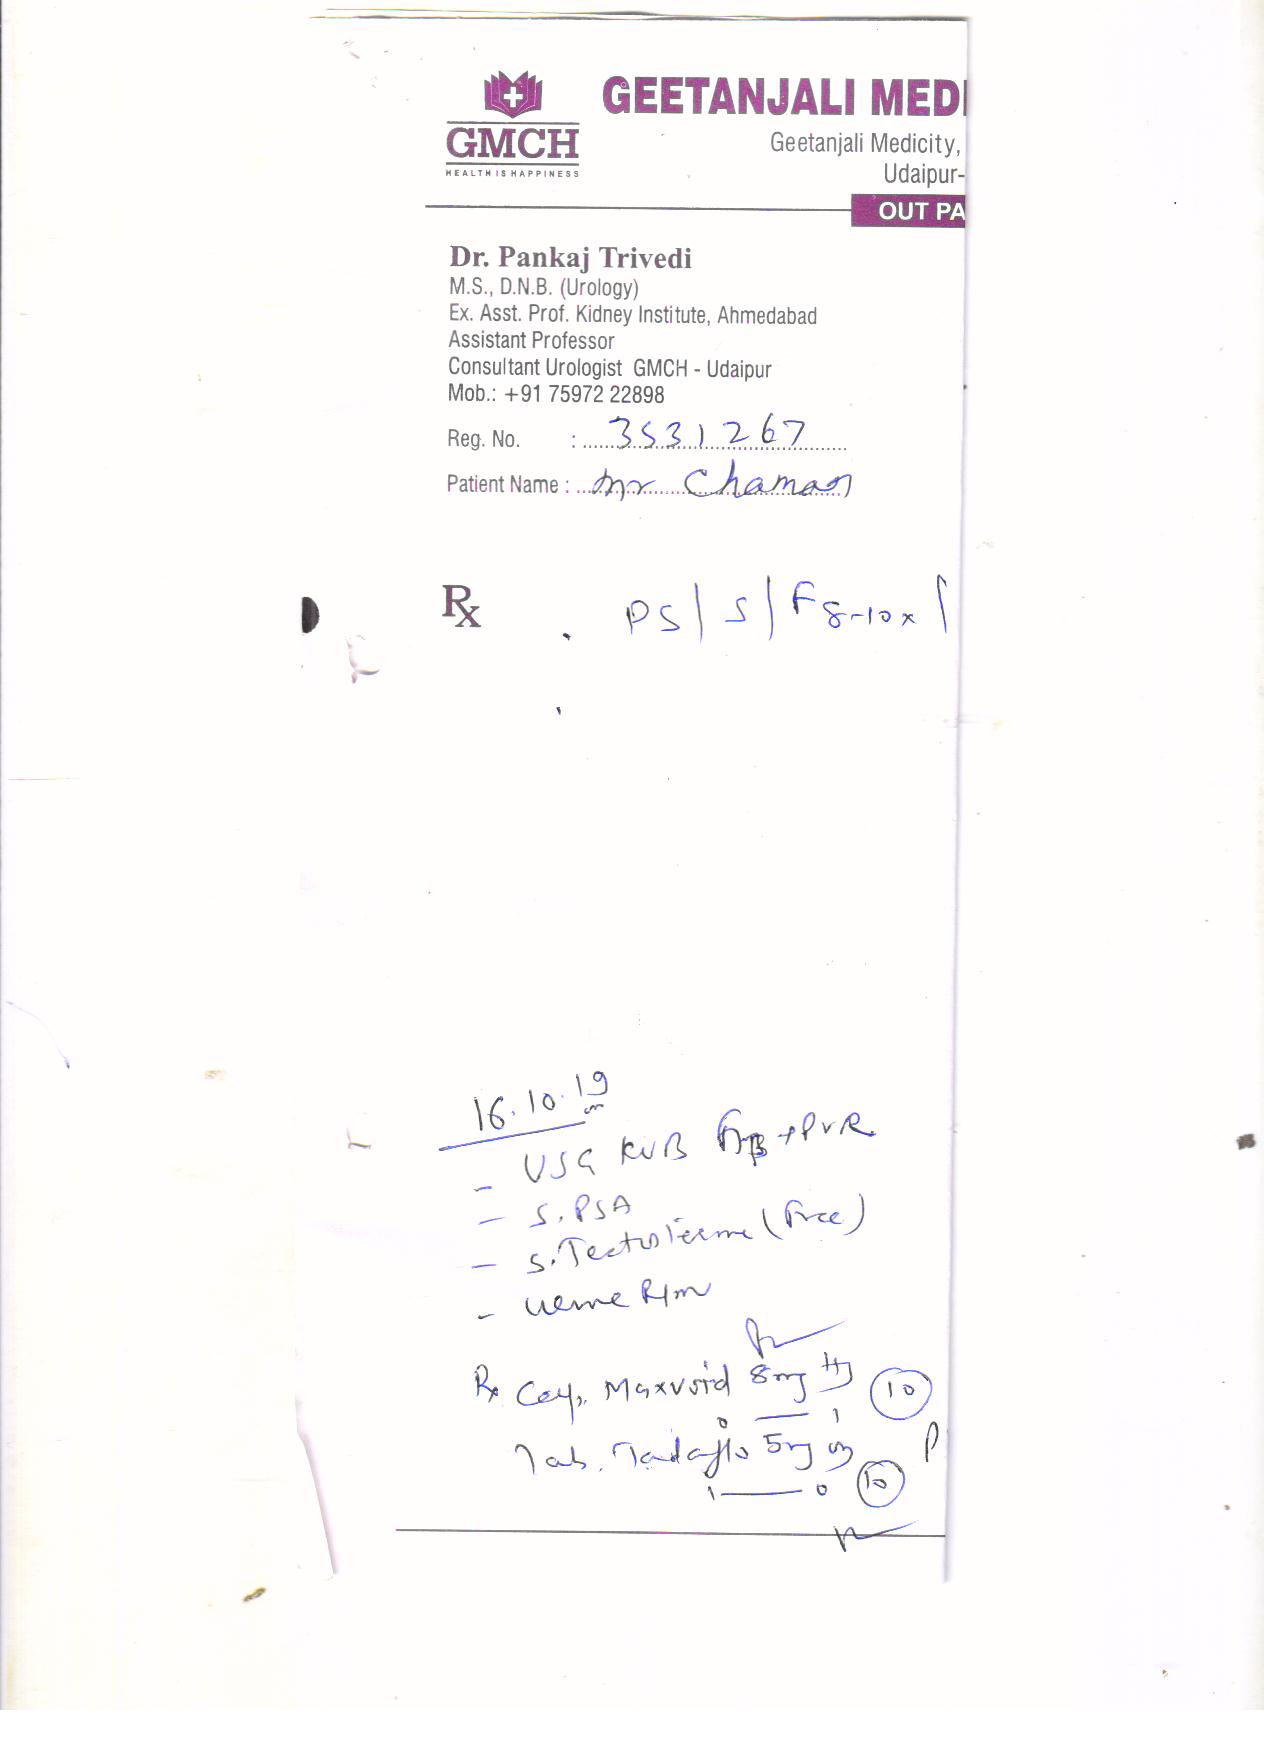 GEETANJALI MEDI
GMCH
HEALTH IS HAPPINESS
Geetanjali Medicity,
Udaipur-
OUT PA
Dr. Pankaj Trivedi
M.S., D.N.B. (Urology)
Ex. Asst. Prof. Kidney Institute, Ahmedabad
Assistant Professor
Consultant Urologist GMCH - Udaipur
Mob.: +91 75972 22898
Reg. No. : 3531267
Patient Name : Mr Chaman
Rx PS | S | F 8-10x
16.10.19
- USG KUB + PVR
- S. PSA
- S. Testosterone (Free)
- Urine R/m
Rx Cap. Maxvoid 8mg 10
0 — 1
Tab. Tadaflo 5mg
1 — 0 10